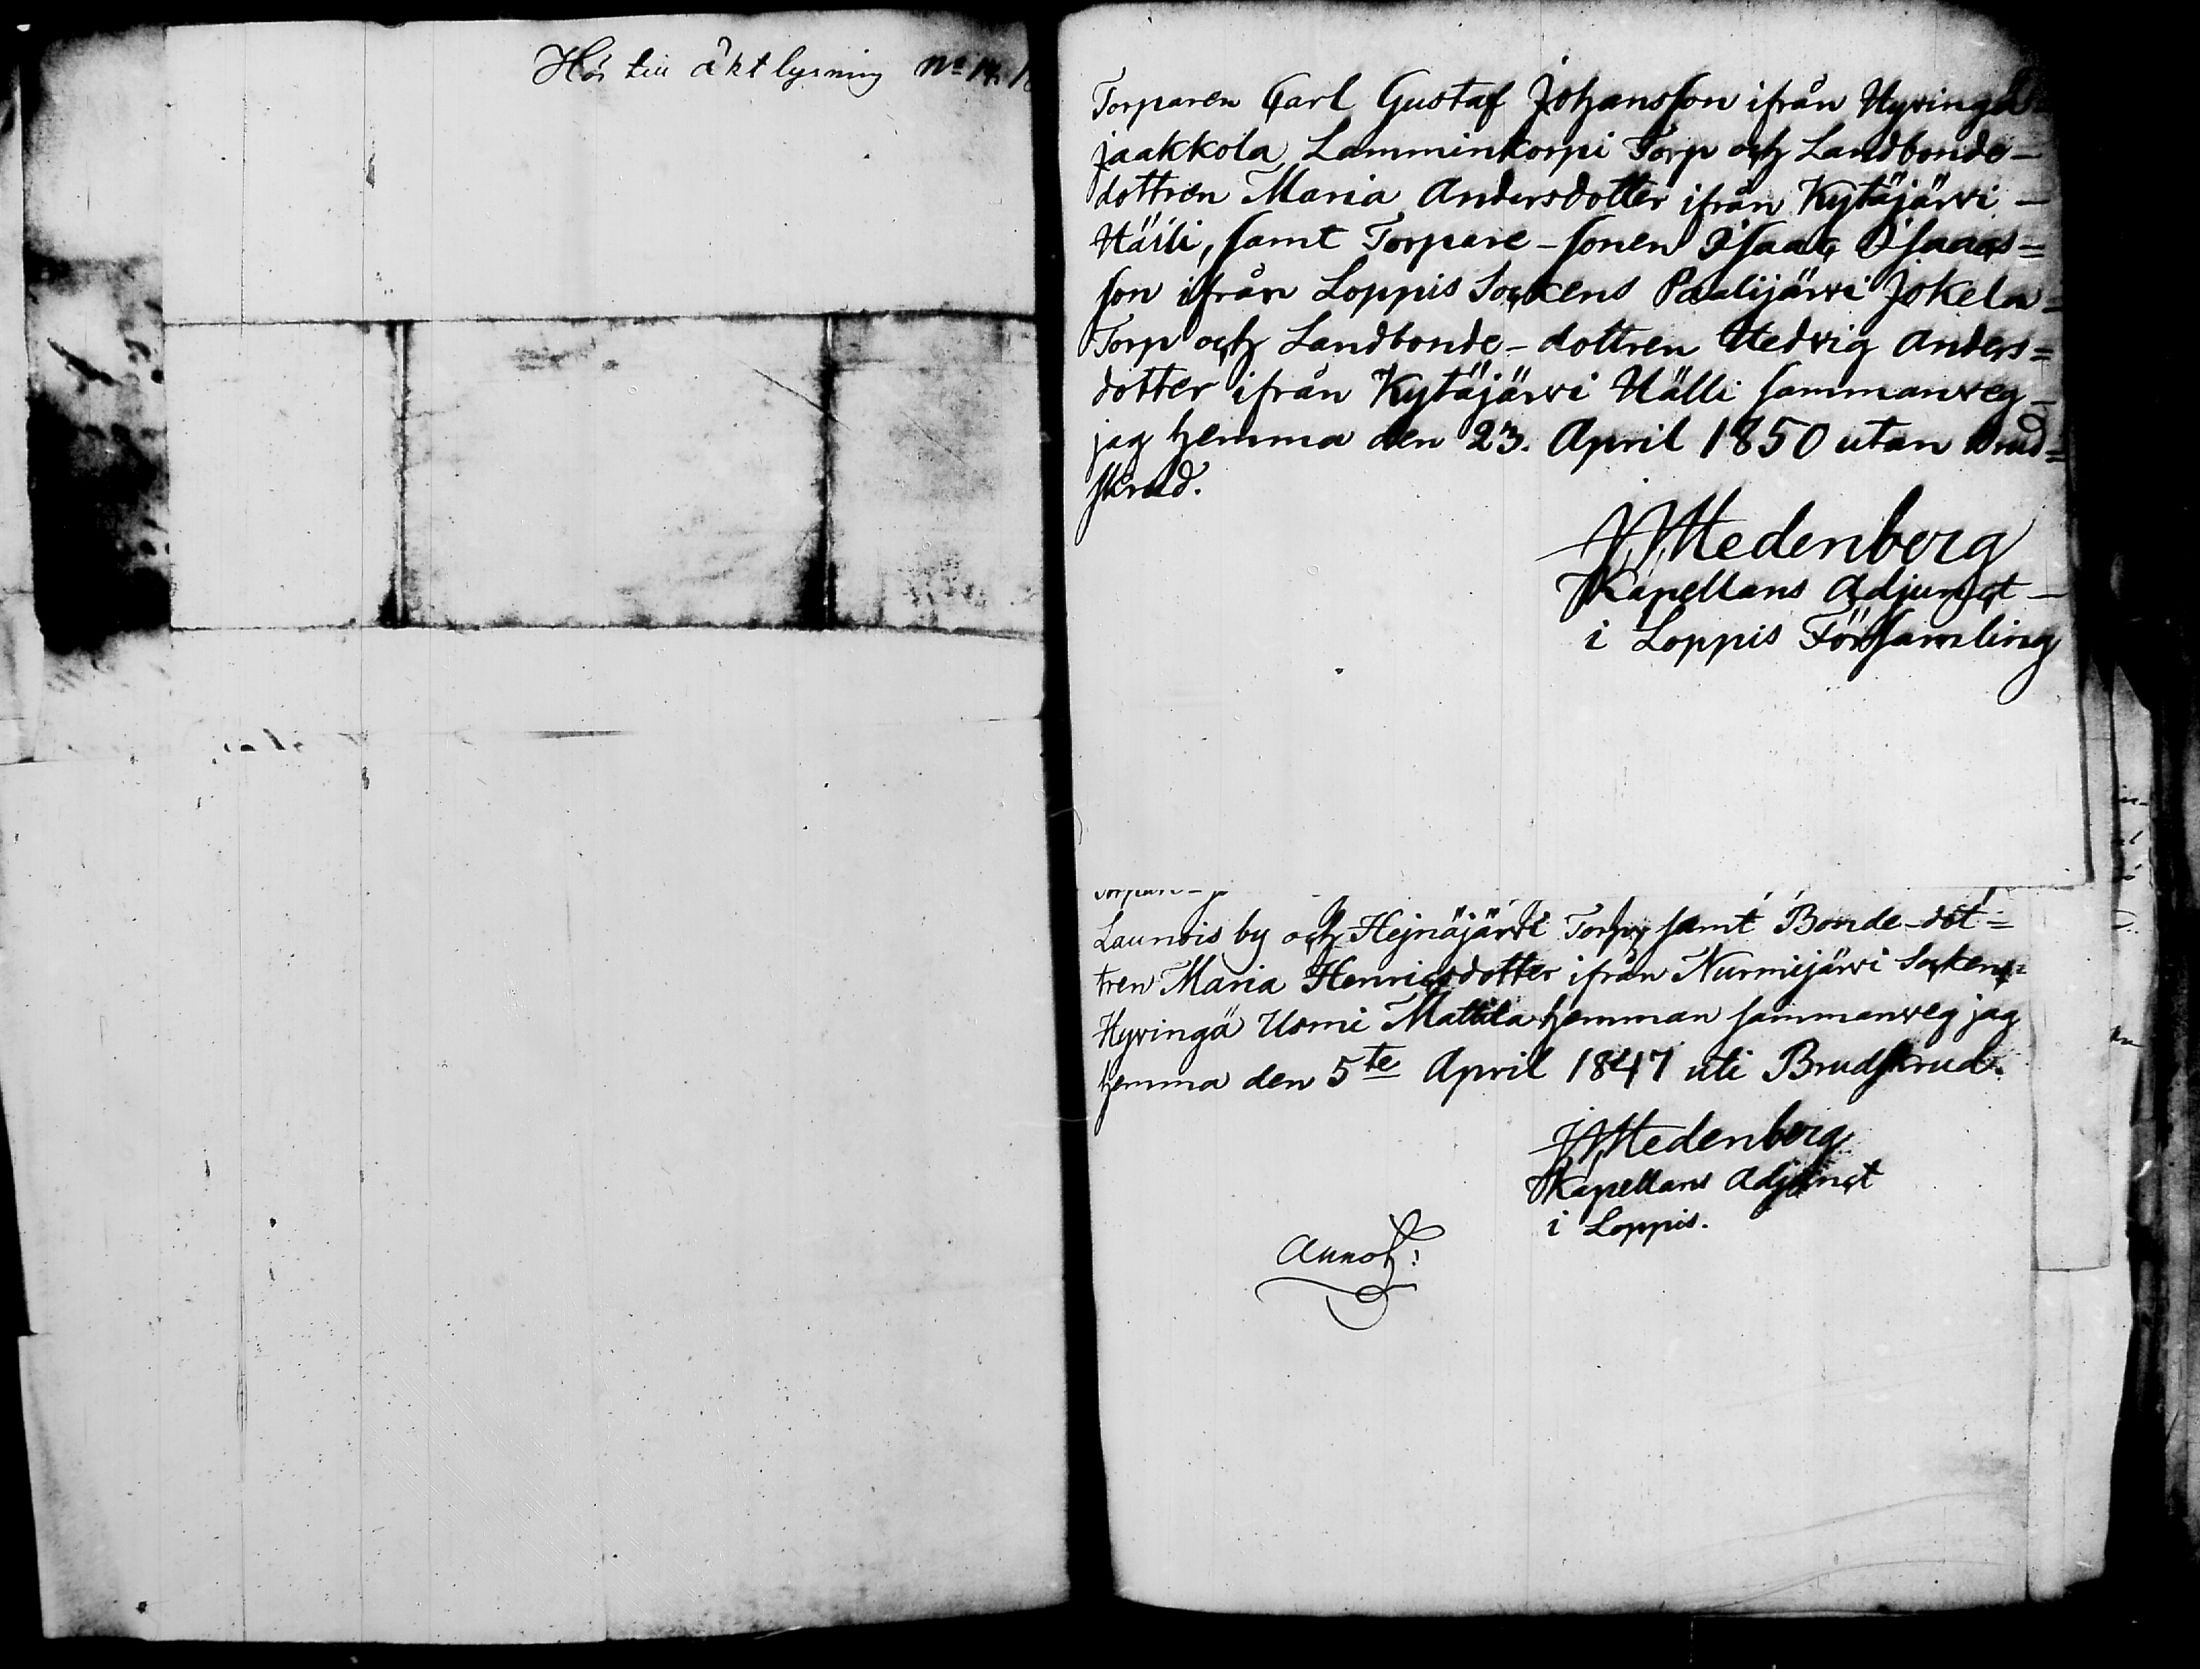 Hör till äkt lysning No 14.
Torparen Carl Gustaf Johansson ifrån Hyvingä
jaakkola Lamminkorpi Torp och Landbonde-
dottren Maria Andersdotter ifrån Kytäjärvi -
Hälli, samt Torpare-sonen Isaac Isaacs=
son ifrån Loppis Sockens Paalijärvi Jokela-
Torp och Landbonde-dottren Hedvig Anders=
dotter ifrån Kytäjärvi Hälli sammanveg-
jag hemma den 23. April 1850 utan Brud=
skrud.
Hedenberg
Kapellans Adjunct -
i Loppis Församling
Launois by och Hejnäjärvi Torp, samt Bonde-dot=
tren Maria Henricsdotter ifrån Nurmijärvi Sockens
Hyvingä Usmi Mattila hemman sammanveg jag
hemma den 5te April 1847 uti Brudskrud.
Hedenberg
Kapellans Adjunct
i Loppis.
Annot: